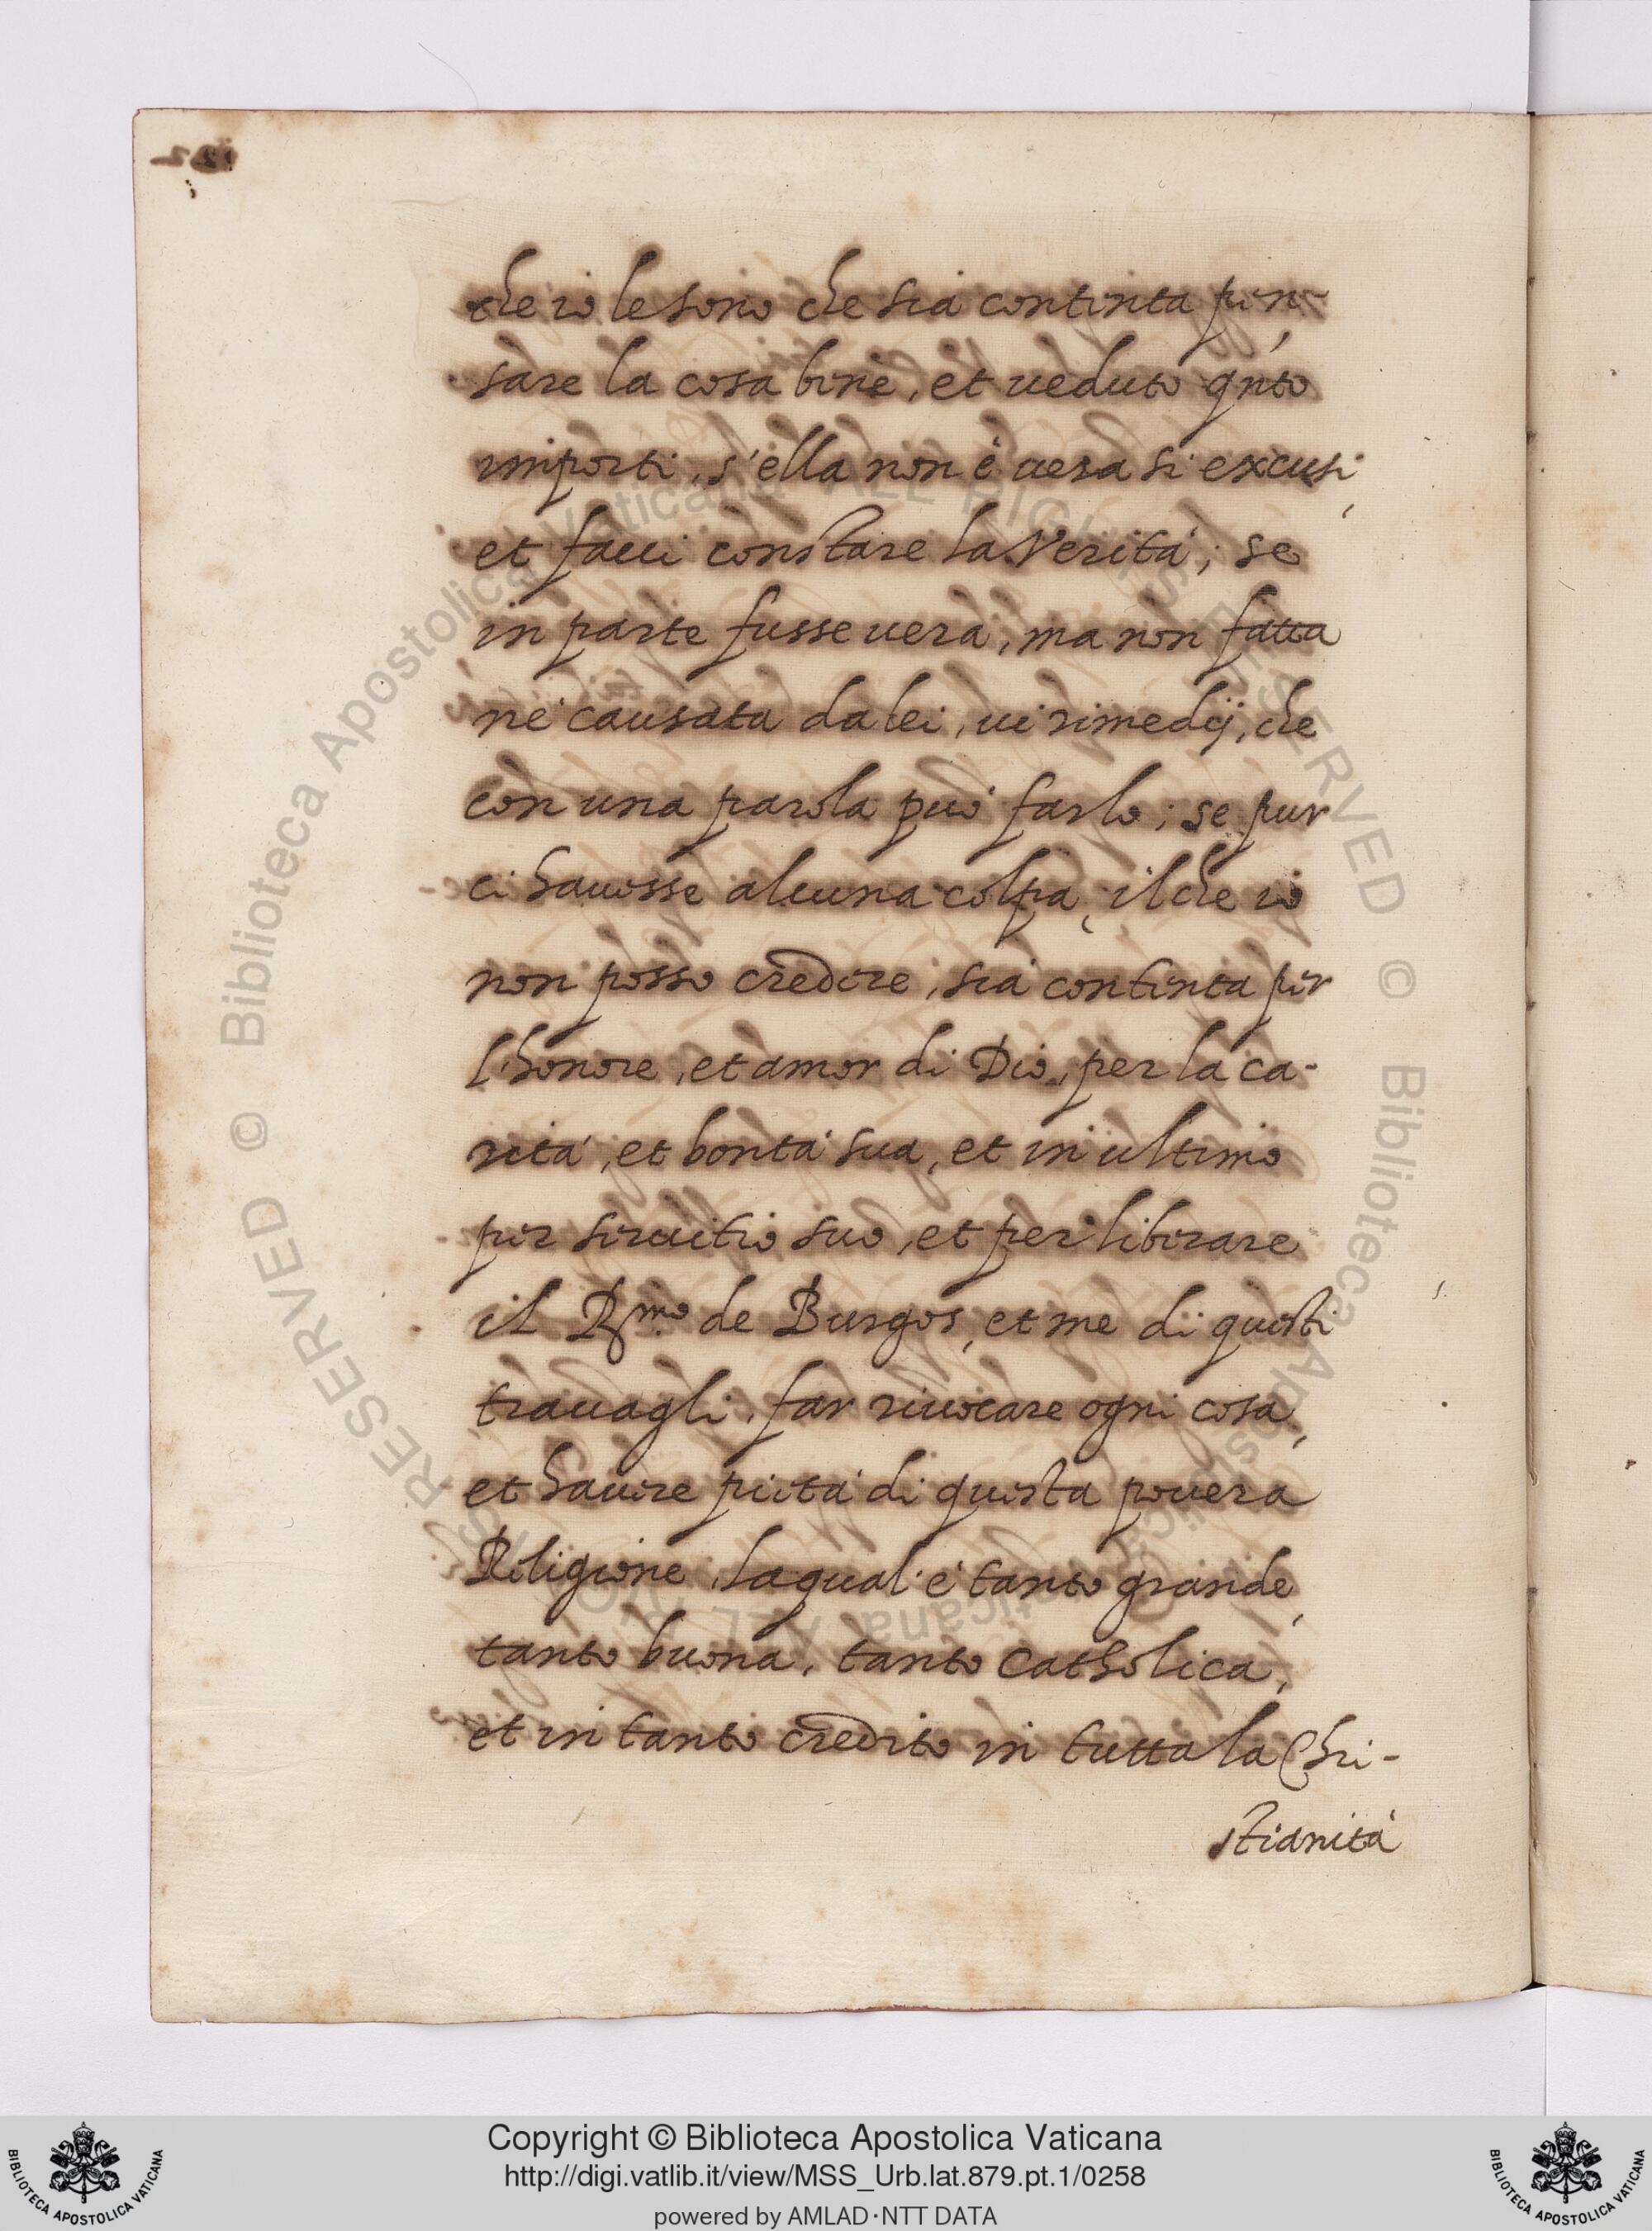 che io le sono che sia contenta pen-
sare la cosa bene, et ueduto qnto
importi, s'ella non è uera si excusi,
et facci constare la Verità; se
in parte fusse uera, ma non fatta
nè causata da lei, ui rimedij, che
con una parola può farlo; se pur
ci hauesse alcuna colpa, il che io
non posso credere, sia contenta per
l'honore, et amor di Dio, per la ca-
rità, et bontà sua, et in ultimo
per seruitio suo, et per liberare
il Rmo de Burgos, et me di questi
trauagli, far riuocare ogni cosa,
et hauere pietà di questa pouera
Religione, la qual' è tanto grande,
tanto buona, tanto Catholica,
et in tanto credito in tutta la Chri-
stianità
© Biblioteca Apostolica Vaticana ALL RIGHTS RESERVED © Biblioteca Apostolica Vaticana ALL RIGHTS RESERVED
BIBLIOTECA APOSTOLICA VATICANA
Copyright © Biblioteca Apostolica Vaticana
http://digi.vatlib.it/view/MSS_Urb.lat.879.pt.1/0258
powered by AMLAD·NTT DATA
BIBLIOTECA APOSTOLICA VATICANA